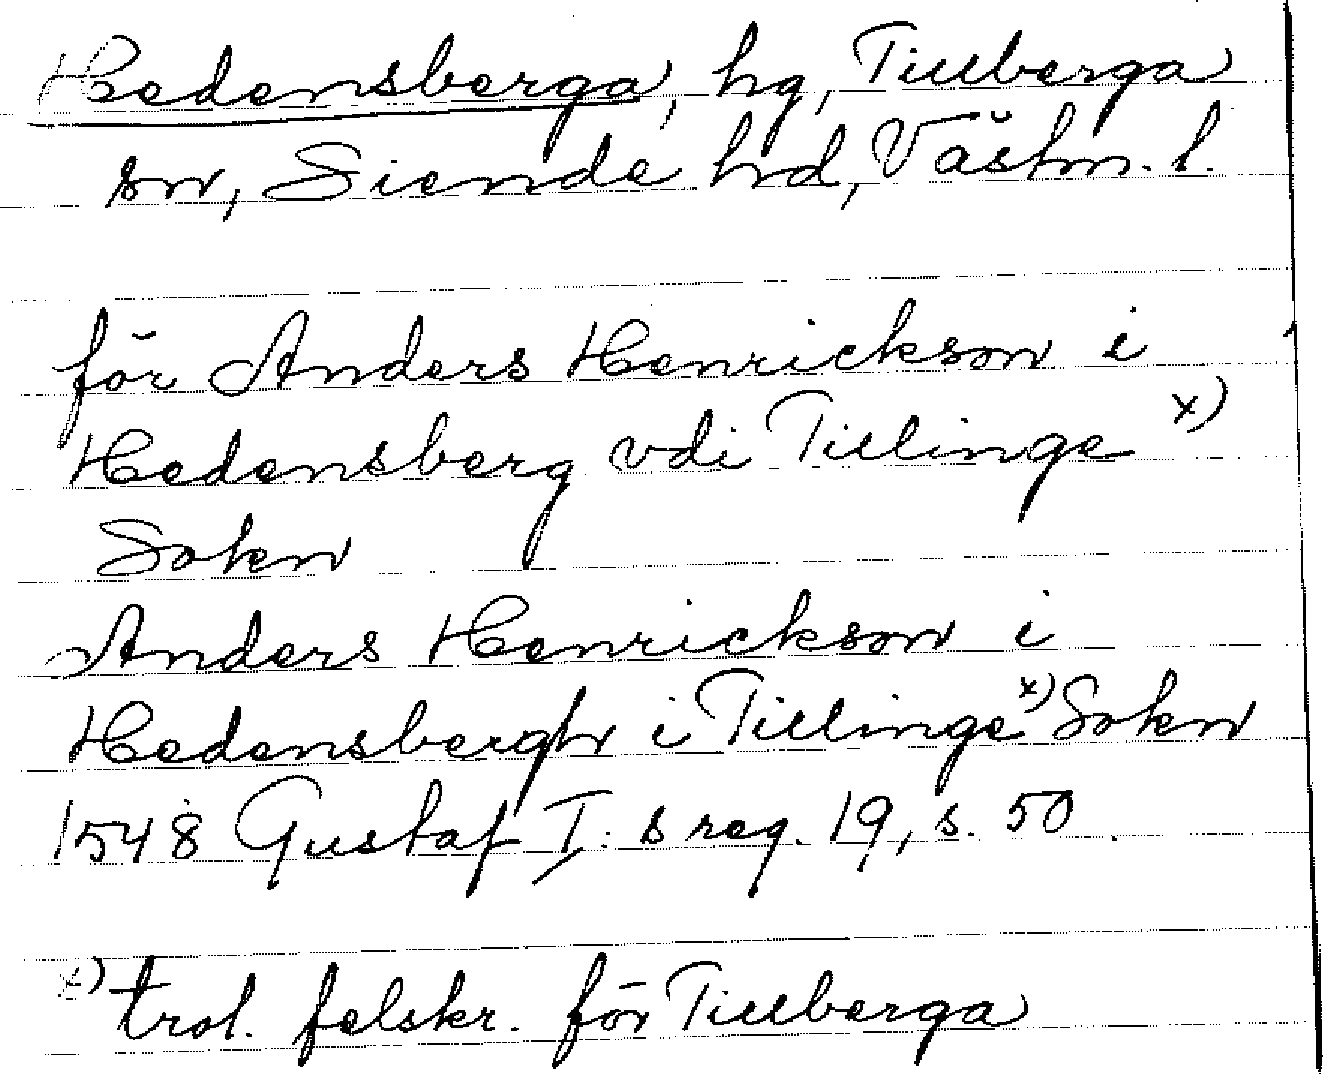 Hedensberga, hg, Tillberga
sn, Siende hd, Västm. l.
för Anders Henrickson i
Hedensberg vdi Tillinge x)
Sokn
Anders Henrickson i
Hedensbergh i Tillinge x) Sokn
1548 Gustaf I: s reg. 19, s. 50.
x) trol. felskr. för Tillberga